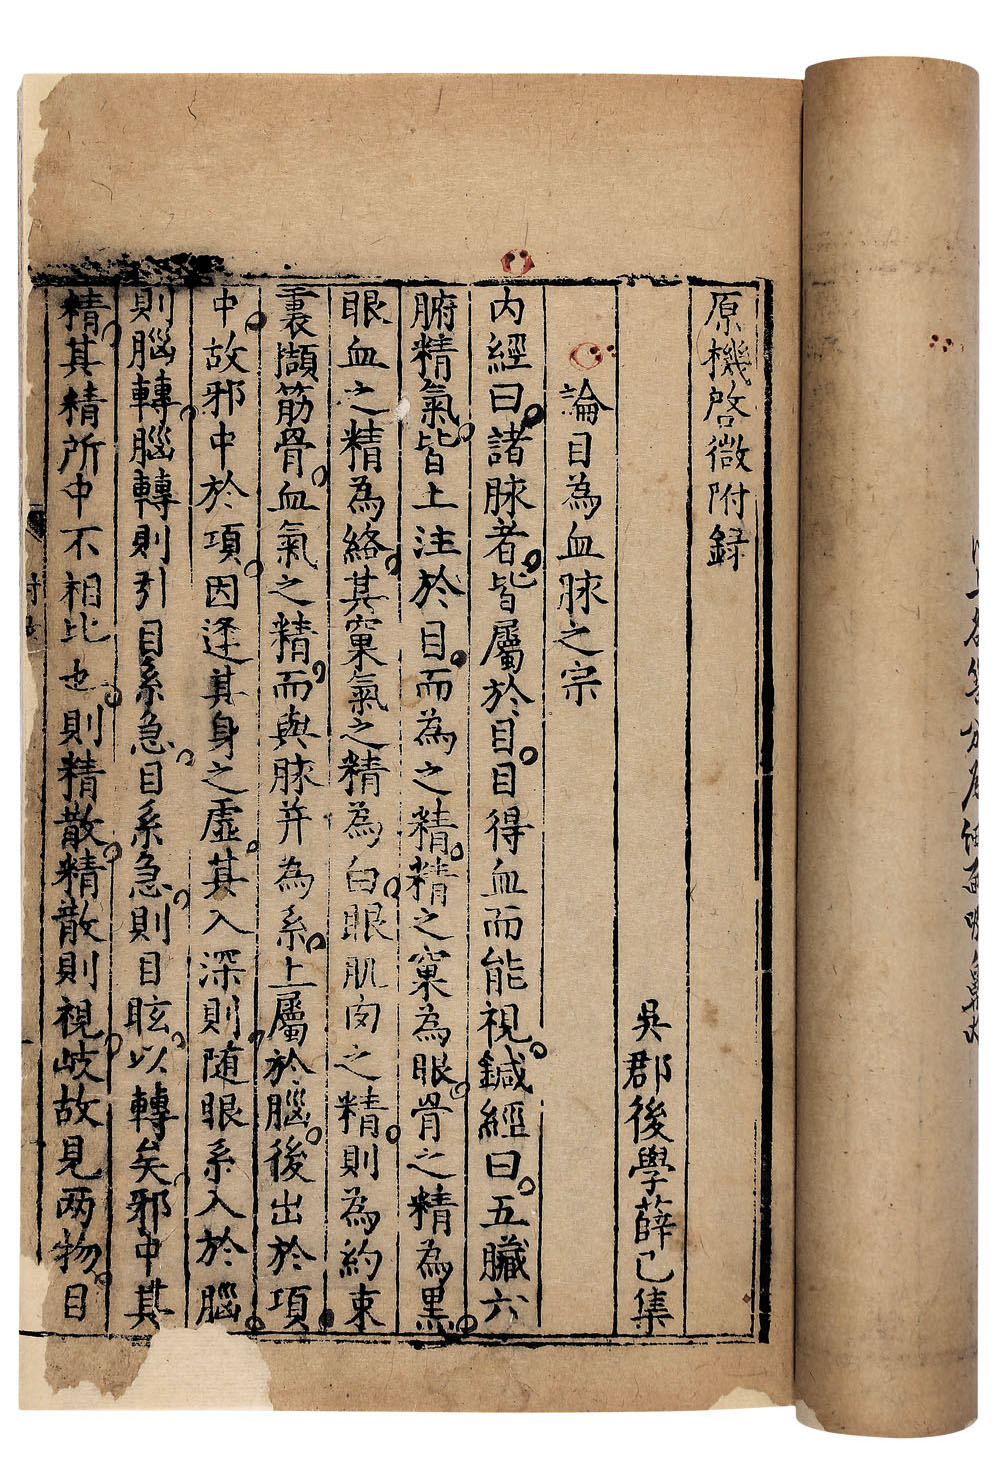 原機啓微附録
吳郡後學薛己集
論目為血脉之宗
内經曰諸脉者皆屬於目目得血而能視鍼經曰五臟六
腑精氣皆上注於目而為之精精之窠為眼骨之精為黒
眼血之精為絡其窠氣之精為白眼肌肉之精則為約束
裹擷筋骨血氣之精而與脉并為系上屬於腦後出於項
中故邪中於項因逢其身之虛其入深則随眼系入於腦
則腦轉腦轉則引目系急目系急則目眩以轉矣邪中其
精其精所中不相比也則精散精散則視岐故見两物目